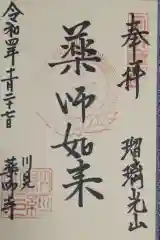 奉拝
瑠璃光山
薬師如来
令和四年十二月二十七日
川見
薬師寺